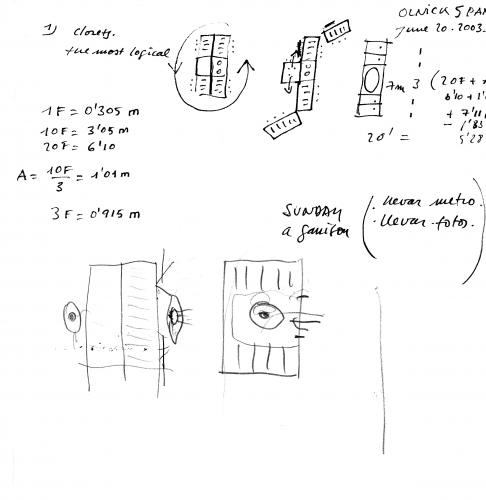 OLNICK SPAN
June 20.2003.
1) closets.
the most logical
1F = 0'305 m
10F = 3'05 m
20F = 6'10
A = 10F/3 = 1'01 m
3F = 0'915 m
7m 3 (20F +
6'10 + 1'
+ 7'11
- 1'83
20' = 5'28
SUNDAY
a Garrison
. llevar metro.
. llevar fotos.